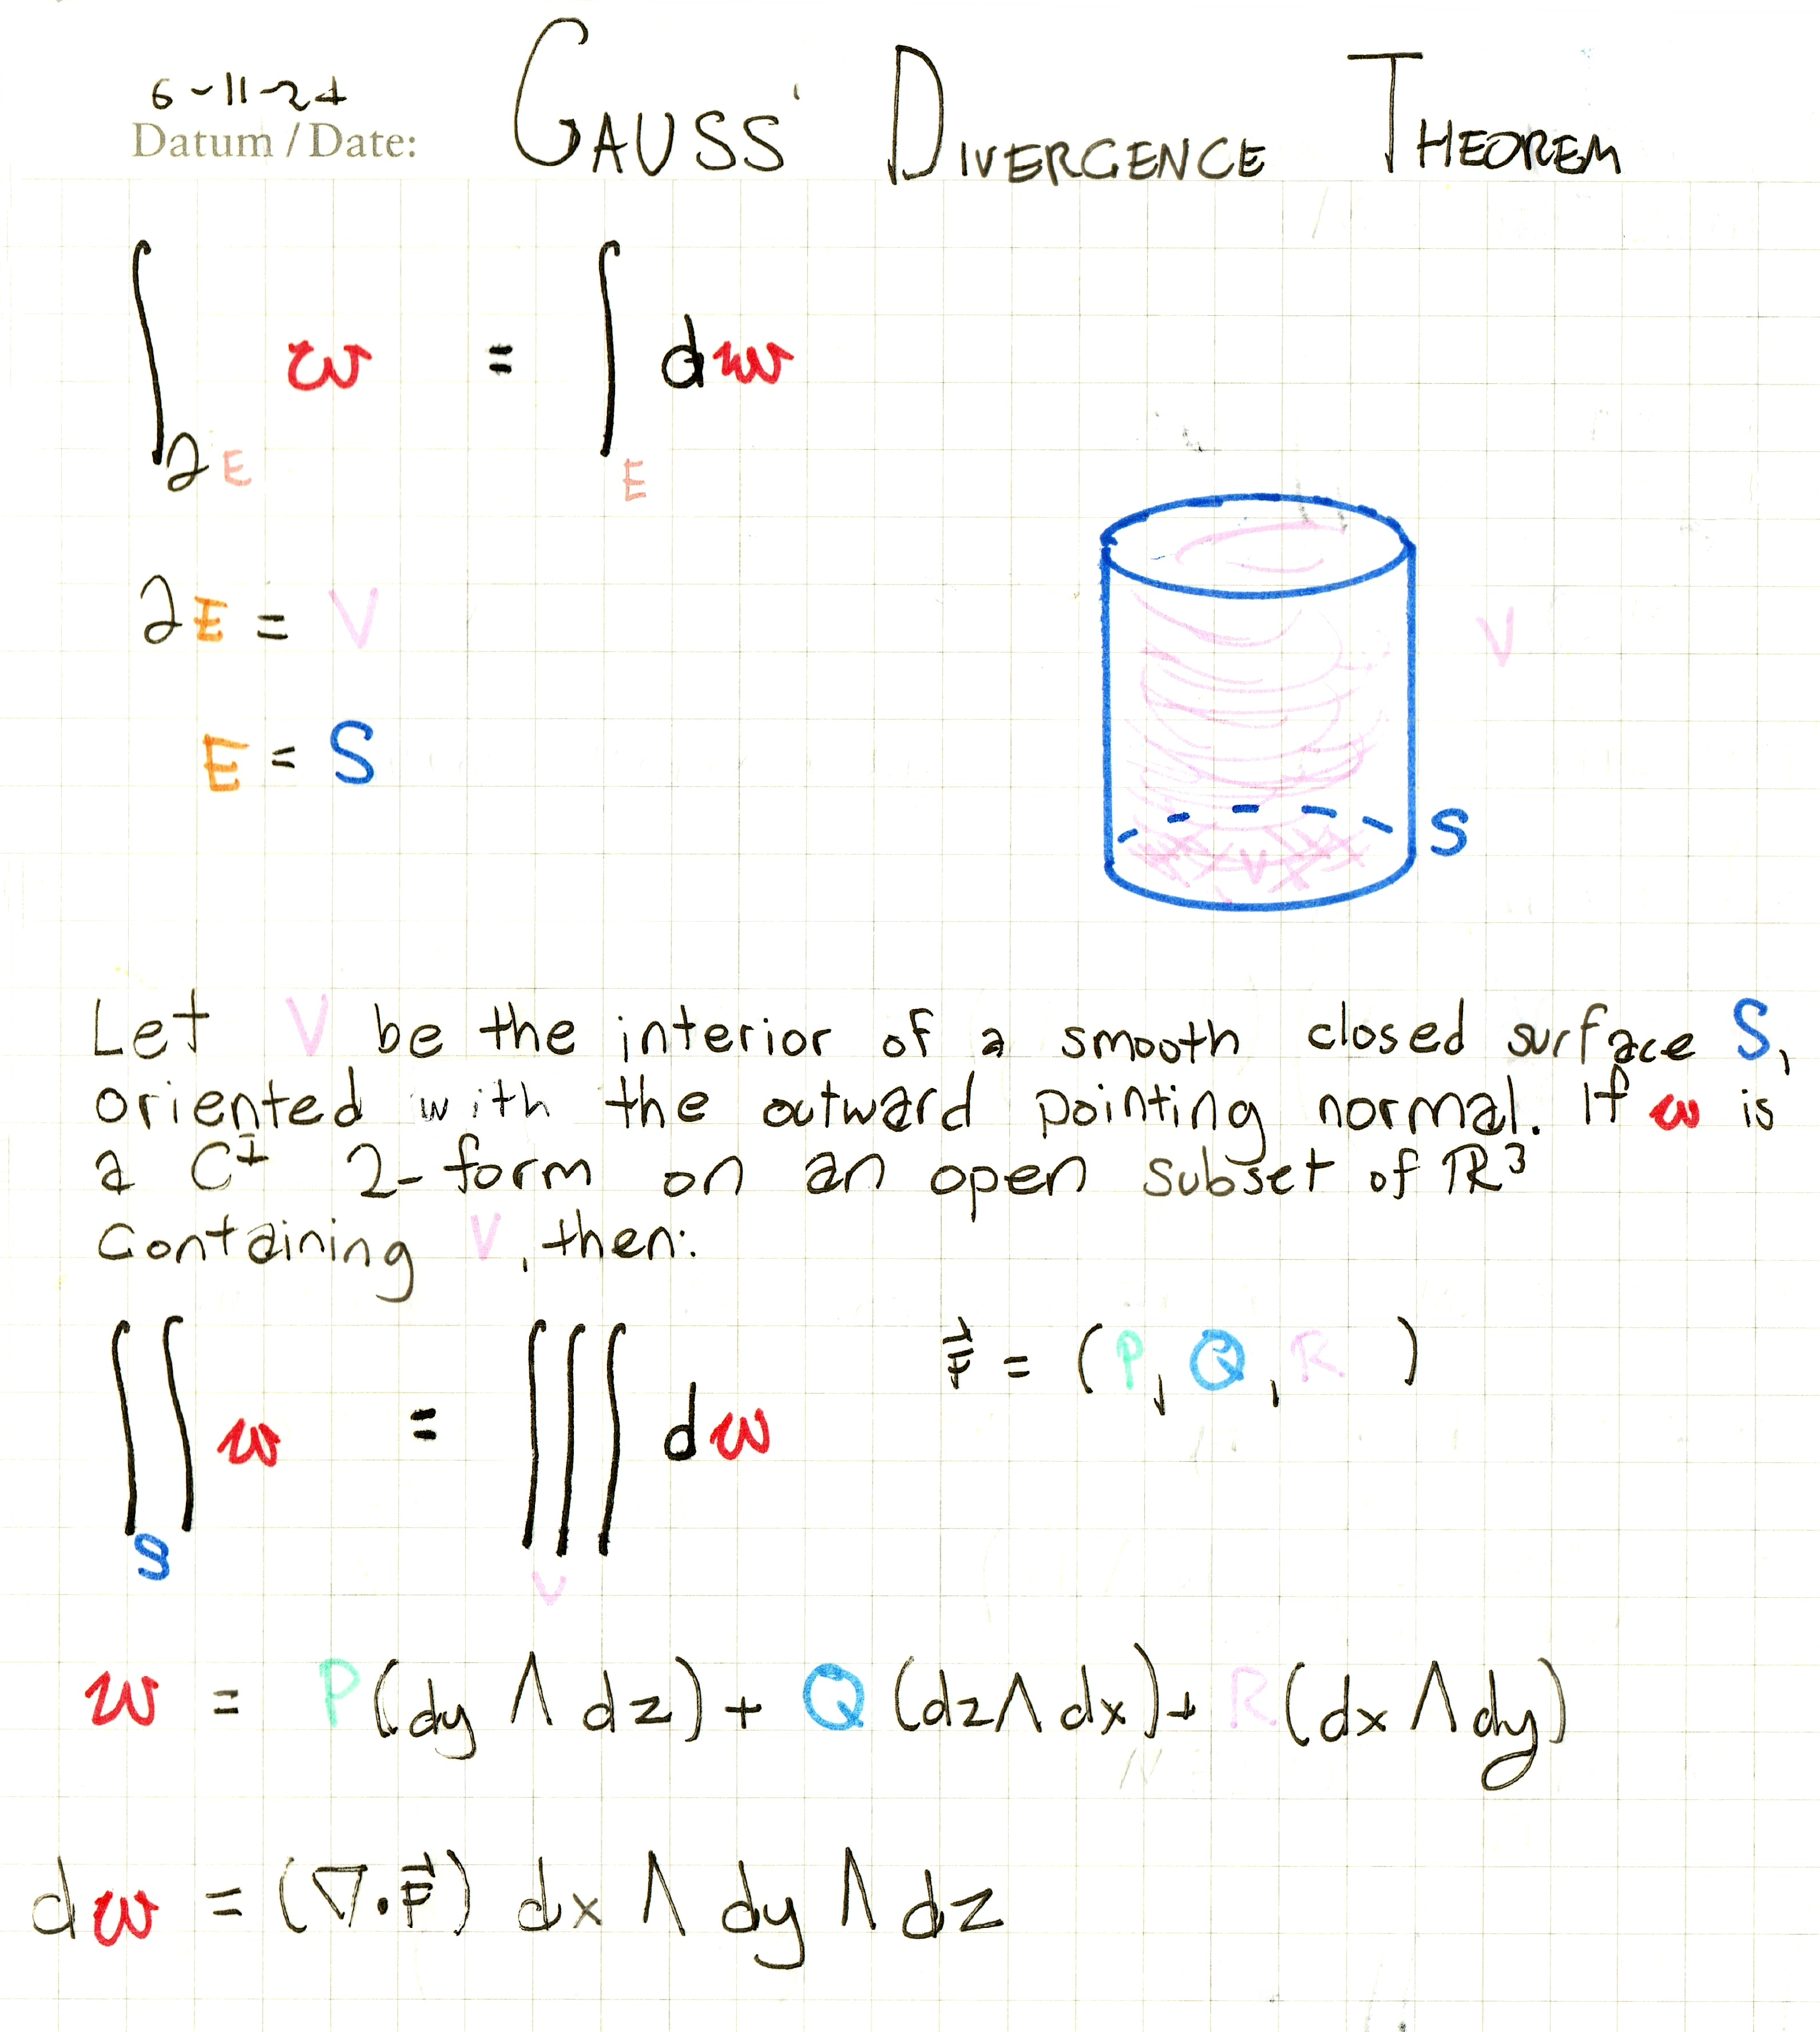 6-11-24
Datum / Date:
GAUSS' DIVERGENCE THEOREM
∫_∂E ω = ∫_E dω
∂E = V
E = S
V
S
V
Let V be the interior of a smooth closed surface S,
oriented with the outward pointing normal. If ω is
a C^1 2-form on an open subset of ℝ^3
containing V, then:
∬_S ω = ∭_V dω
F⃗ = (P, Q, R)
ω = P(dy ∧ dz) + Q(dz ∧ dx) + R(dx ∧ dy)
dω = (∇·F⃗) dx ∧ dy ∧ dz